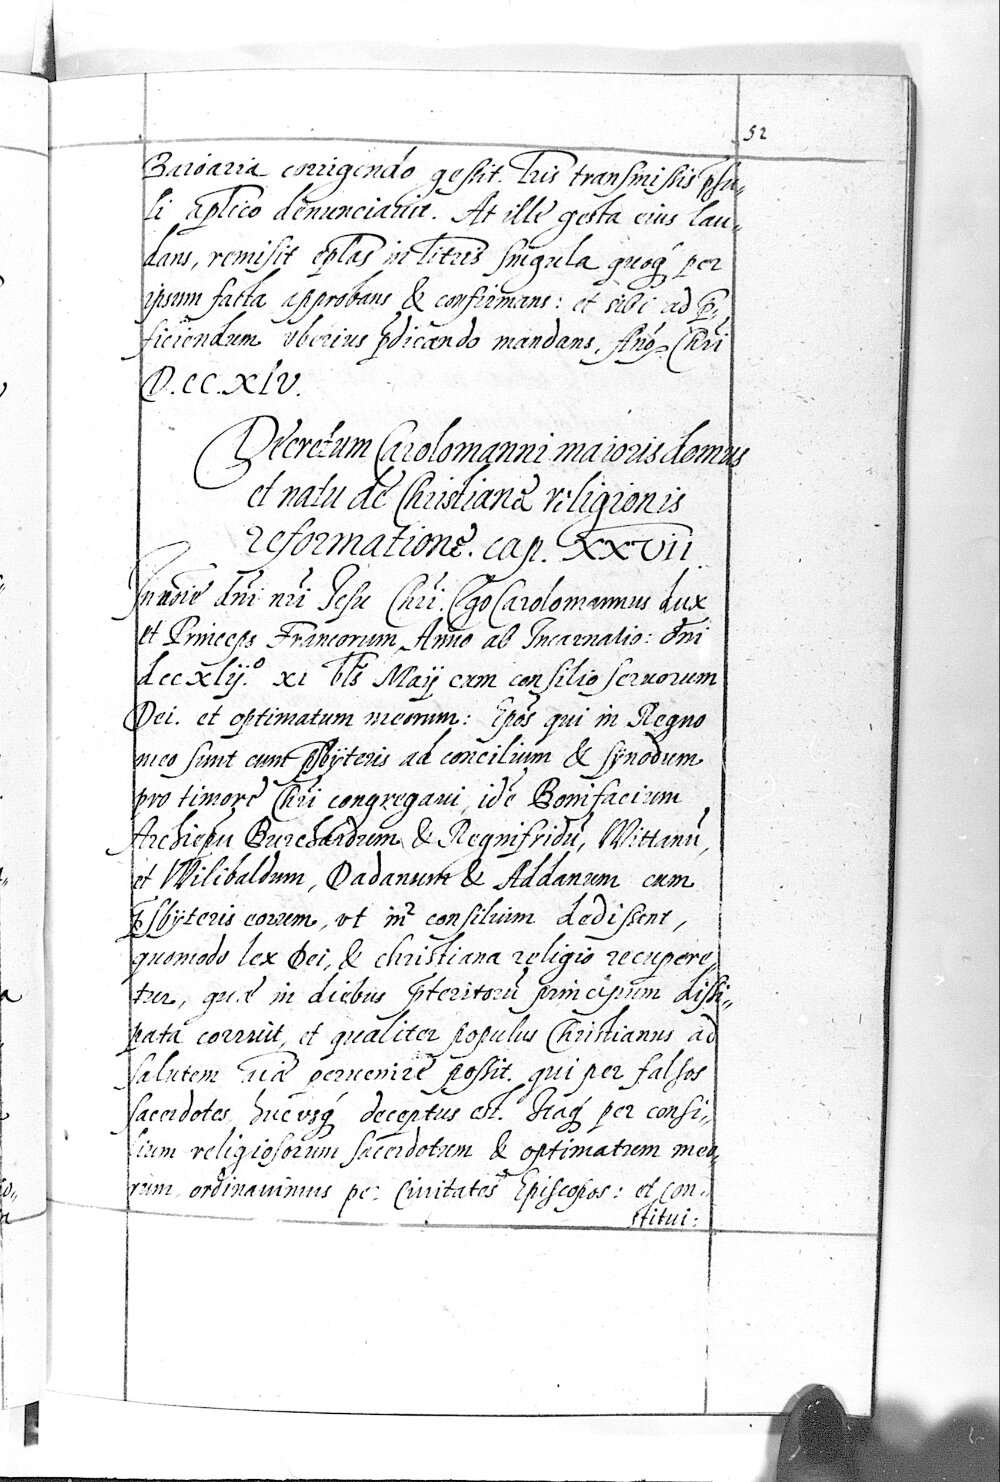 52
Baioaria corrigendo gessit. Lris transmissis psu„
li aplico denunciauit. At ille gesta eius lau„
dans, remisit eplas in litris singula quoq per
ipsum facta approbans & confirmans: et sibi ad p„
ficiendum vberius pdicando mandans. Ano Chri
D.CC.XLV.
Decretum Carolomanni maioris domus
et natu de Christiane religionis
reformatione. cap. XXVII
In noie dni nri Jesu Chri. Ego Carolomannus Dux
et Princeps Francorum, Anno ab Incarnatio: dni
dccxlij.º xi kls Maij cum consilio seruorum
Dei. et optimatum meorum: Epos qui in Regno
meo sunt cum psbyteris ad concilium & synodum
pro timore Chri congregaui, ide Bonifacium
Archiepu Burchardum & Regnifridu, Wittanu,
et Wilibaldum, Dadanum & Addanum cum
psbyteris eorum, vt m consilium dedissent,
quomodo lex Dei, & christiana religio recupere„
tur, que in diebus pteritoru principum dissi„
pata corruit, et qualiter populus Christianus ad
salutem aie peruenire possit, qui per falsos
sacerdotes hucusq deceptus est. Itaq per consi„
lium religiosorum sacerdotum & optimatum meo„
rum, ordinauimus per Ciuitates Episcopos: et con„
stitui: